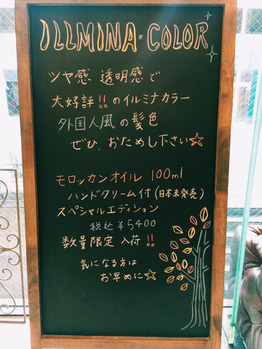 ILLMINA・COLOR
ツヤ感 透明感で
大好評!!のイルミナカラー
外国人風の髪色
ぜひ、おためし下さい☆
モロッカンオイル 100ml
ハンドクリーム付(日本未発売)
スペシャルエディション
税込 ¥5400
数量限定 入荷!!
気になる方は
お早めに☆